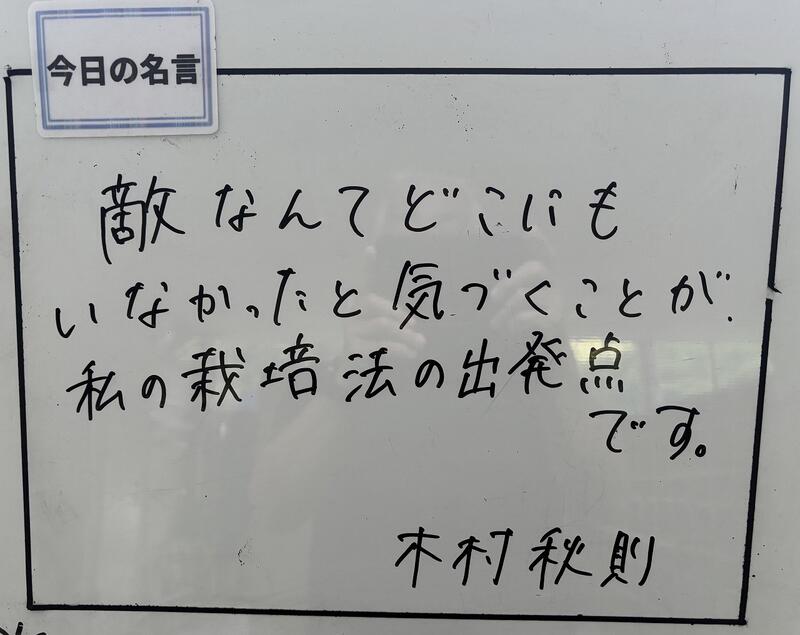 今日の名言
敵なんてどこにも
いなかったと気づくことが、
私の栽培法の出発点
です。
木村秋則